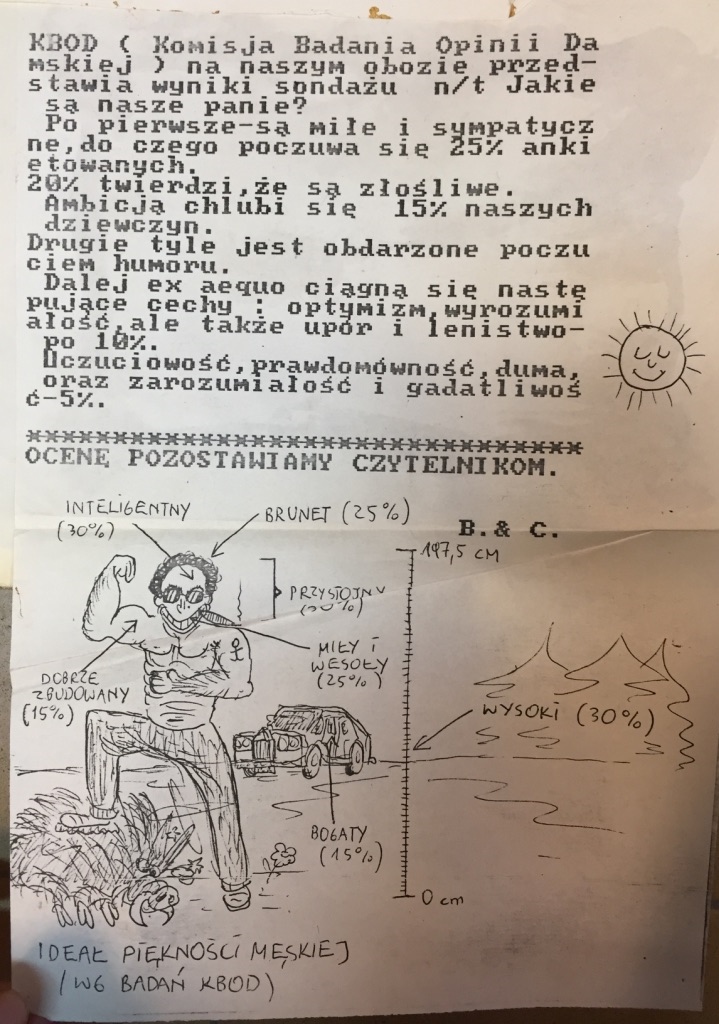 KBOD ( Komisja Badania Opinii Da
mskiej ) na naszym obozie przed-
stawia wyniki sondażu n/t Jakie
są nasze panie?
Po pierwsze-są miłe i sympatycz
ne,do czego poczuwa się 25% anki
etowanych.
20% twierdzi,że są złośliwe.
Ambicją chlubi się 15% naszych
dziewczyn.
Drugie tyle jest obdarzone poczu
ciem humoru.
Dalej ex aequo ciągną się nastę
pujące cechy : optymizm,wyrozumi
ałość,ale także upór i lenistwo-
po 10%.
Uczuciowość,prawdomówność,duma,
oraz zarozumiałość i gadatliwoś
ć-5%.
********************************
OCENĘ POZOSTAWIAMY CZYTELNIKOM.
B. & C.
INTELIGENTNY
(30%)
BRUNET (25%)
197,5 CM
PRZYSTOJNY
DOBRZE
ZBUDOWANY
(15%)
MIŁY I
WESOŁY
(25%)
WYSOKI (30%)
BOGATY
(15%)
0 cm
IDEAŁ PIĘKNOŚCI MĘSKIEJ
(WG BADAŃ KBOD)